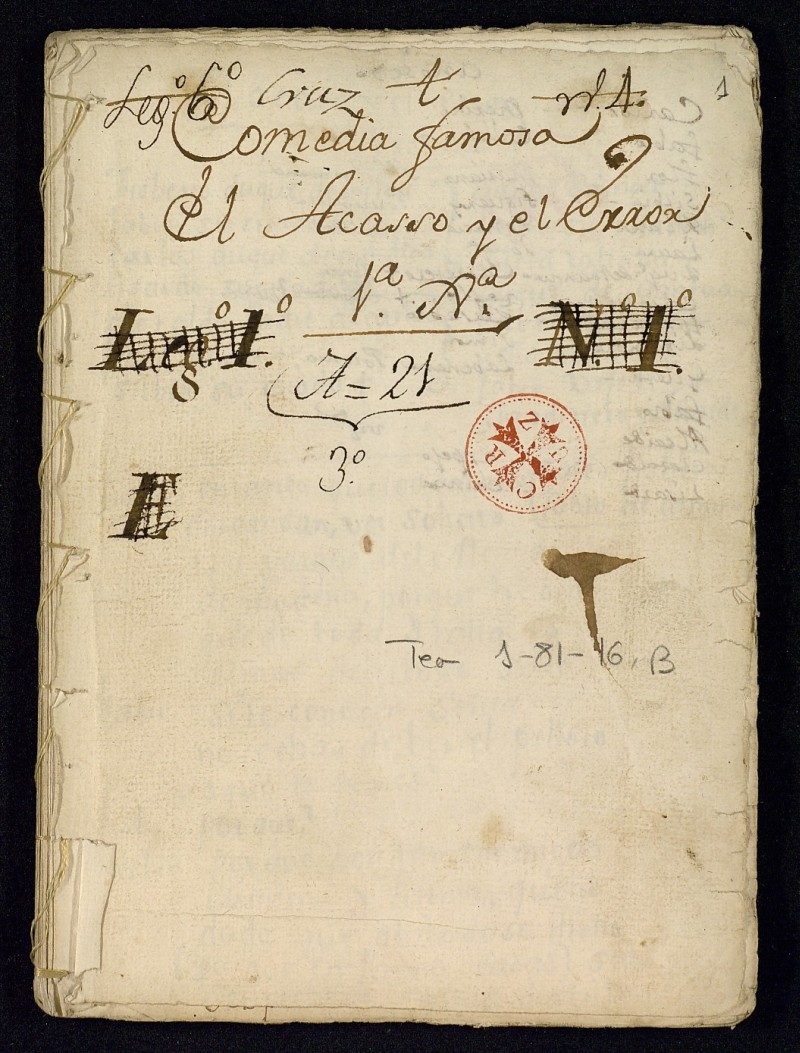 1
Legº 6º Cruz t nº 4.
Comedia famosa
El Acasso y el Error
1ª. Aª.
Legº 1º. Nº. 1º.
8
A = 21
3º.
CRUZ
E
Tea 1-81-16, B